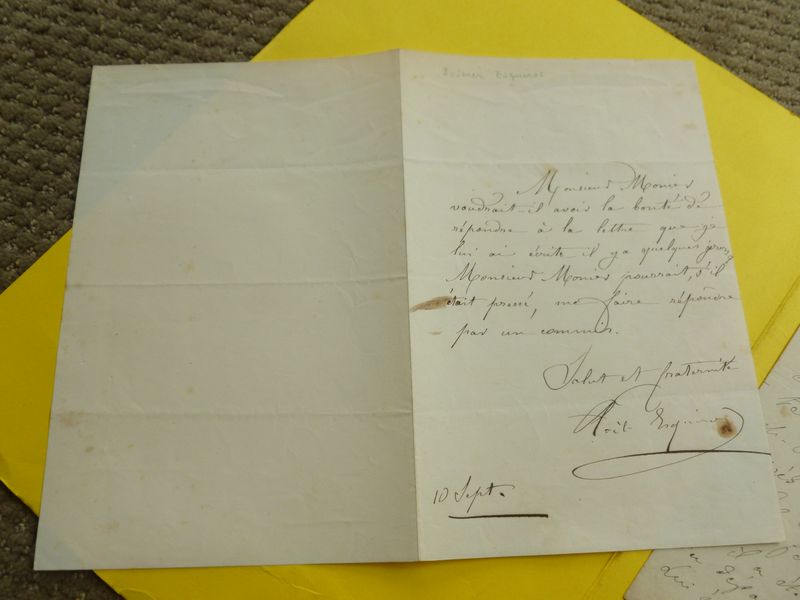 Esquiros
Monsieur Monier
voudrait-il avoir la bonté de
répondre à la lettre que je
lui ai écrite il y a quelques jours,
Monsieur Monier pourrait, s'il
était pressé, me faire répondre
par un commis.
Salut et fraternité
Esquiros
10 Sept.